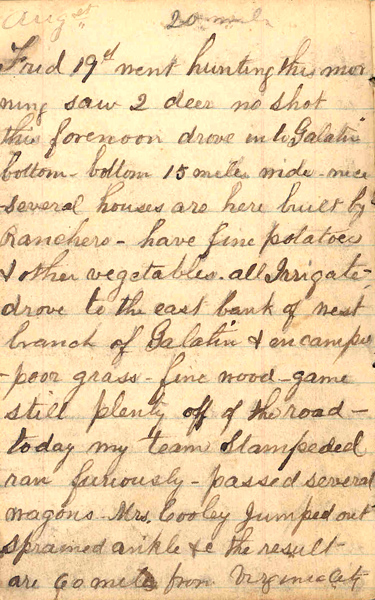 August
20 miles
Frid 19th went hunting this mor
ning saw 2 deer no shot
this forenoon drove in to Galatin
bottom - bottom 15 miles wide - nice
- several houses are here built by
Ranchers - have fine potatoes
& other vegetables. all Irrigate -
drove to the east bank of west
branch of Galatin & encamped
- poor grass - fine wood - game
still plenty off of the road -
today my team Stampeded
ran furiously - passed several
wagons - Mrs. Cooley Jumped out
sprained ankle &c the result
are 60 miles from Virginia City